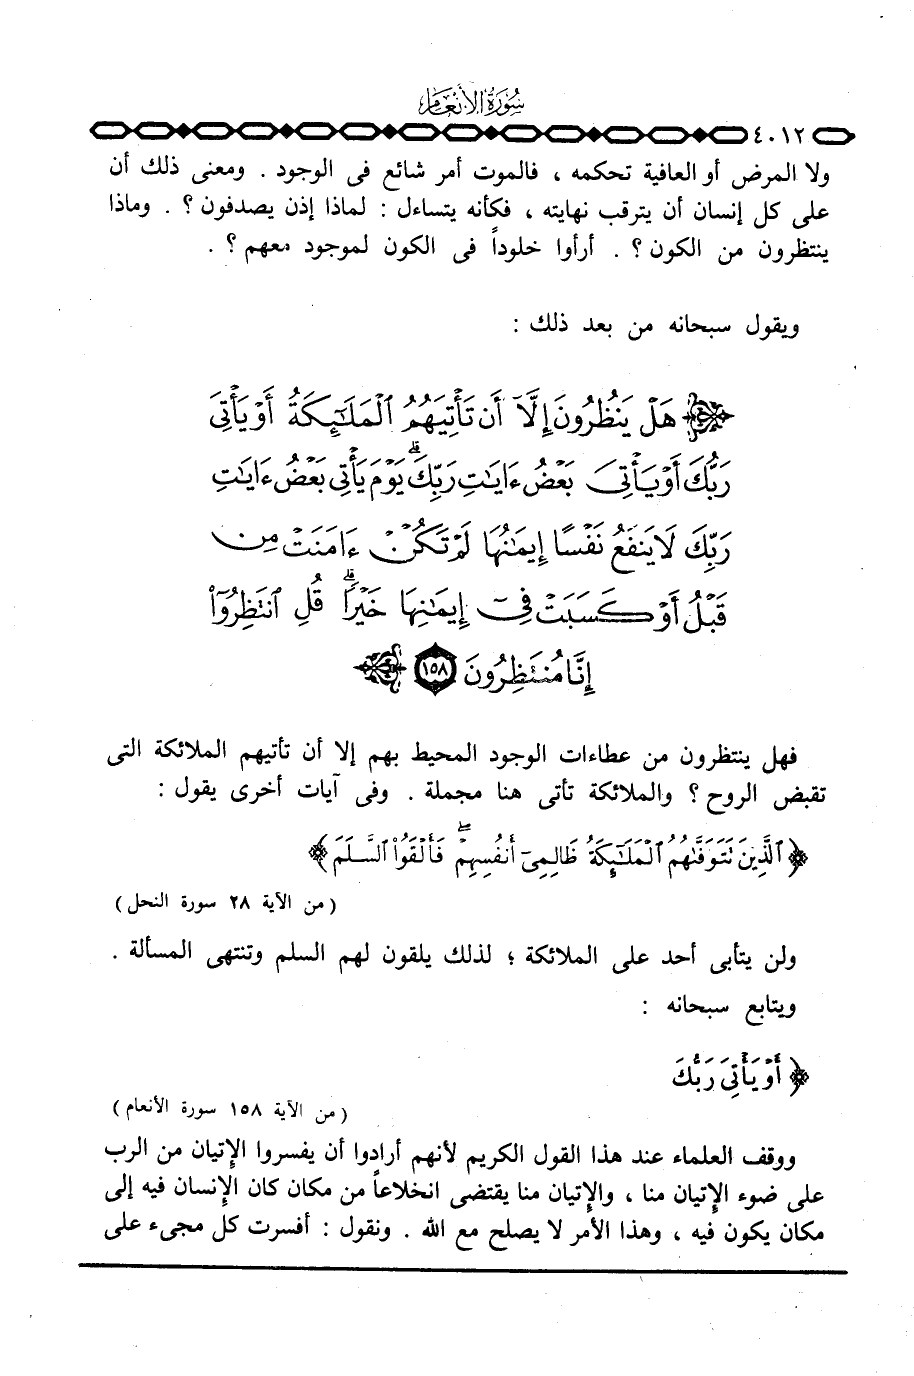 سُورَةُ الأَنْعَام
٤٠١٢
ولا المرض أو العافية تحكمه ، فالموت أمر شائع فى الوجود . ومعنى ذلك أن
على كل إنسان أن يترقب نهايته ، فكأنه يتساءل : لماذا إذن يصدفون ؟ . وماذا
ينتظرون من الكون ؟ . أرأوا خلوداً فى الكون لموجود معهم ؟ .
ويقول سبحانه من بعد ذلك :
هَلْ يَنظُرُونَ إِلَّآ أَن تَأْتِيَهُمُ ٱلْمَلَٰٓئِكَةُ أَوْ يَأْتِىَ
رَبُّكَ أَوْ يَأْتِىَ بَعْضُ ءَايَٰتِ رَبِّكَ ۗ يَوْمَ يَأْتِى بَعْضُ ءَايَٰتِ
رَبِّكَ لَا يَنفَعُ نَفْسًا إِيمَٰنُهَا لَمْ تَكُنْ ءَامَنَتْ مِن
قَبْلُ أَوْ كَسَبَتْ فِىٓ إِيمَٰنِهَا خَيْرًا ۗ قُلِ ٱنتَظِرُوٓا۟
إِنَّا مُنتَظِرُونَ ١٥٨
فهل ينتظرون من عطاءات الوجود المحيط بهم إلا أن تأتيهم الملائكة التى
تقبض الروح ؟ والملائكة تأتى هنا مجملة . وفى آيات أخرى يقول :
﴿ ٱلَّذِينَ تَتَوَفَّىٰهُمُ ٱلْمَلَٰٓئِكَةُ ظَالِمِىٓ أَنفُسِهِمْ ۖ فَأَلْقَوُا۟ ٱلسَّلَمَ ﴾
( من الآية ٢٨ سورة النحل )
ولن يتأبى أحد على الملائكة ؛ لذلك يلقون لهم السلم وتنتهى المسألة .
ويتابع سبحانه :
﴿ أَوْ يَأْتِىَ رَبُّكَ
( من الآية ١٥٨ سورة الأنعام )
ووقف العلماء عند هذا القول الكريم لأنهم أرادوا أن يفسروا الإتيان من الرب
على ضوء الإتيان منا ، والإتيان منا يقتضى انخلاعاً من مكان كان الإنسان فيه إلى
مكان يكون فيه ، وهذا الأمر لا يصلح مع الله . ونقول : أفسرت كل مجىء على